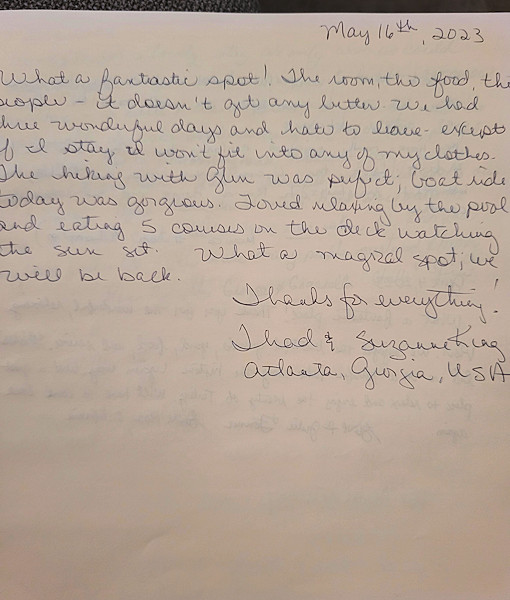 May 16th, 2023
What a fantastic spot! The room, the food, the
people - it doesn't get any better. We had
three wonderful days and hate to leave - except
if I stay I won't fit into any of my clothes.
The hiking with Glen was perfect; boat ride
today was gorgeous. Loved relaxing by the pool
and eating 5 courses on the deck watching
the sun set. What a magical spot; we
will be back.
Thanks for everything!
Thad & Suzanne King
Atlanta, Georgia, USA